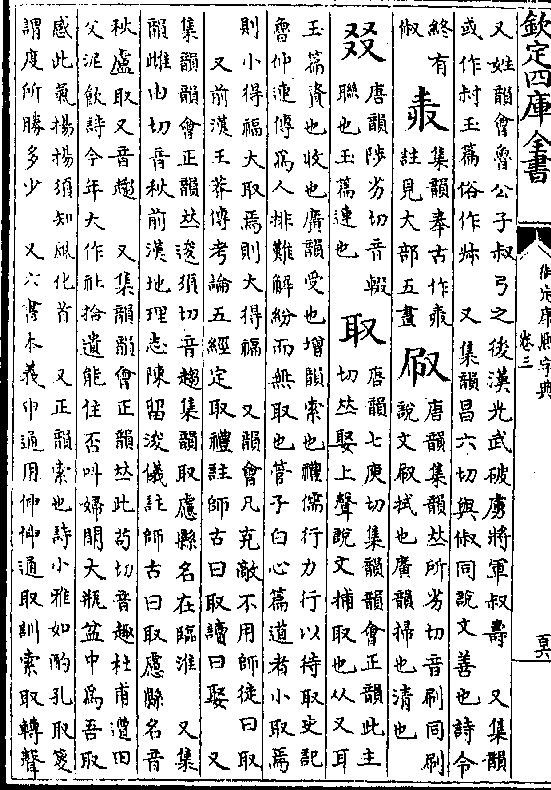 欽定四庫全書
御定康熙字典
卷三
百六
又姓韻會魯公子叔弓之後漢光武破虜將軍叔壽 又集韻
或作村玉篇俗作 又集韻昌六切與俶同說文善也詩令
終有
俶
集韻奉古作
註見大部五畫
㕞
唐韻集韻𠀤所劣切音刷同刷
說文㕞拭也廣韻掃也清也
叕
唐韻陟劣切音輟
聯也玉篇連也
取
唐韻七庾切集韻韻會正韻此主
切𠀤娶上聲說文捕取也从又耳
玉篇資也收也廣韻受也增韻索也禮儒行力行以待取史記
魯仲連傳爲人排難解紛而無取也管子白心篇道者小取焉
則小得福大取焉則大得福 又韻會凡克敵不用師徒曰取
又前漢王莽傳考論五經定取禮註師古曰取讀曰娶 又
集韻韻會正韻𠀤逡須切音趨集韻取慮縣名在臨淮 又集
韻雌由切音秋前漢地理志陳留浚儀註師古曰取慮縣名音
秋盧取又音趨 又集韻韻會正韻𠀤此苟切音趣杜甫遭田
父泥飲詩今年大作社拾遺能住否叫婦開大瓶盆中爲吾取
感此氣揚揚須知風化首 又正韻索也詩小雅如酌孔取箋
謂度所勝多少 又六書本義巾通用伸神通取訓索取轉聲